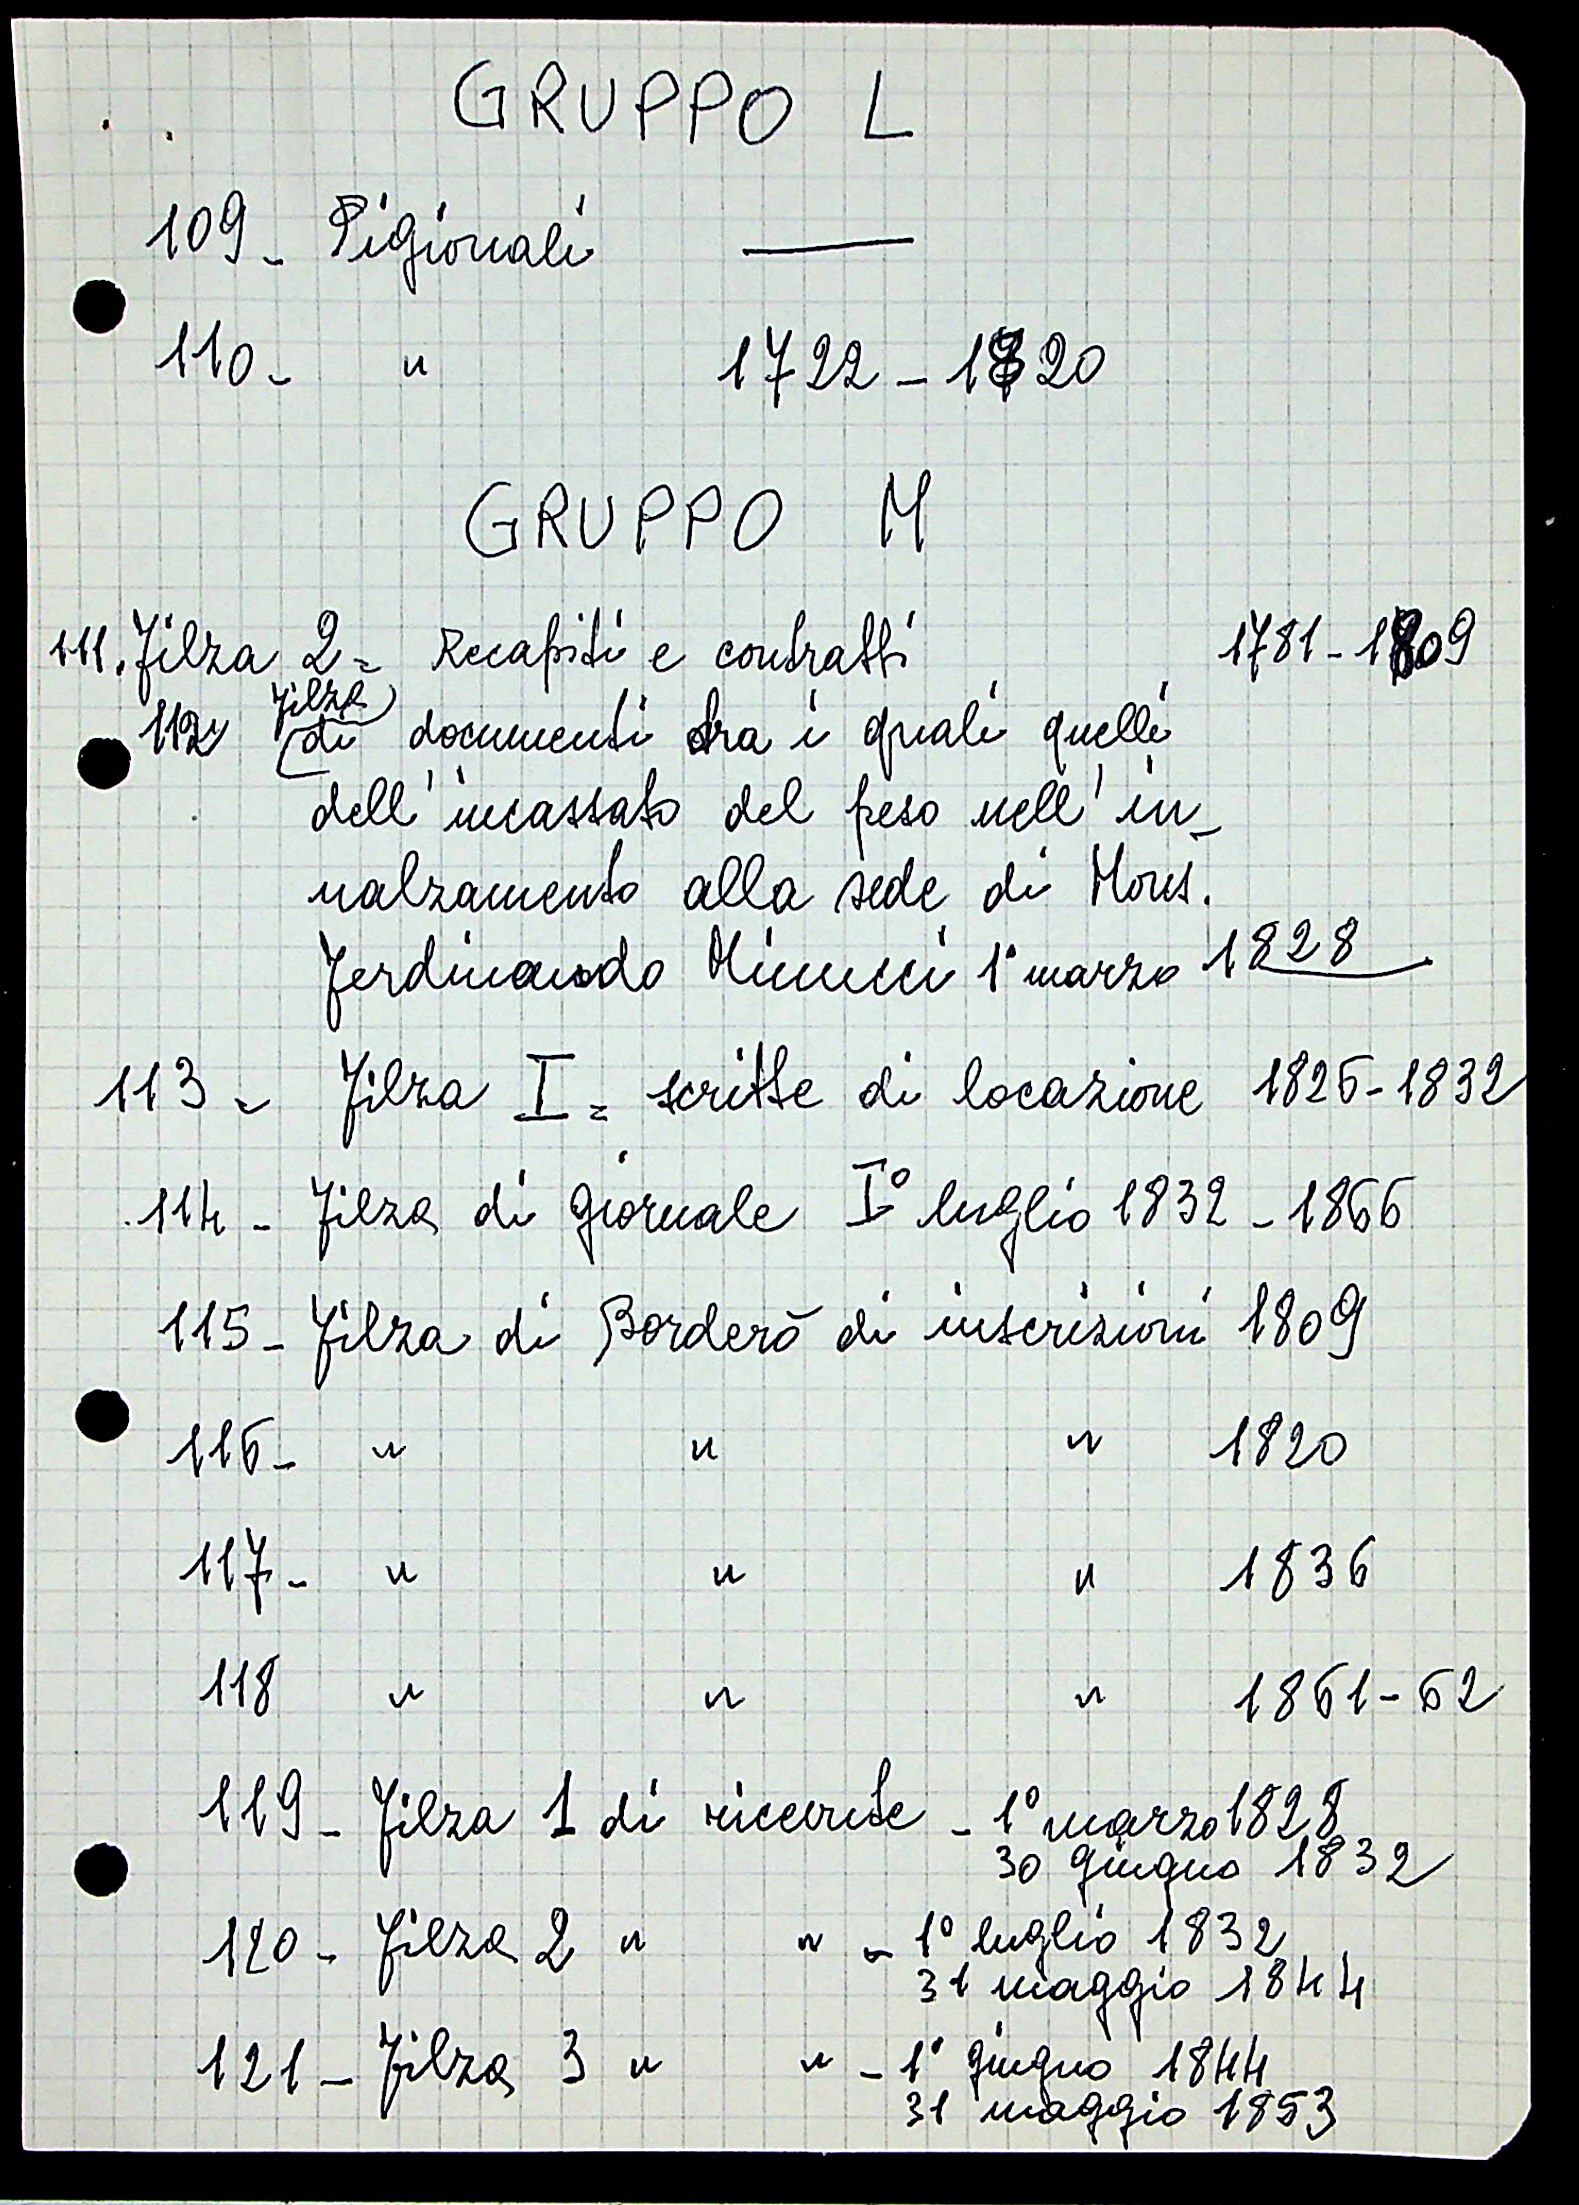 GRUPPO L
109 - Pigionali ———
110 - " 1722 - 1820
GRUPPO M
111. Filza 2 = Recapiti e contratti 1781 - 1809
Filza
112 di documenti tra i quali quelli
dell'incassato del peso nell'in-
nalzamento alla sede di Mons.
Ferdinando Minucci 1° marzo 1828
113 - Filza I = scritte di locazione 1826 - 1832
114 - Filza di giornale I° luglio 1832 - 1866
115 - Filza di Borderò di inscrizioni 1809
116 - " " " 1820
117 - " " " 1836
118 " " " 1861 - 62
119 - Filza 1 di ricevute - 1° marzo 1828
30 giugno 1832
120 - Filza 2 " " - 1° luglio 1832
31 maggio 1844
121 - Filza 3 " " - 1° giugno 1844
31 maggio 1853